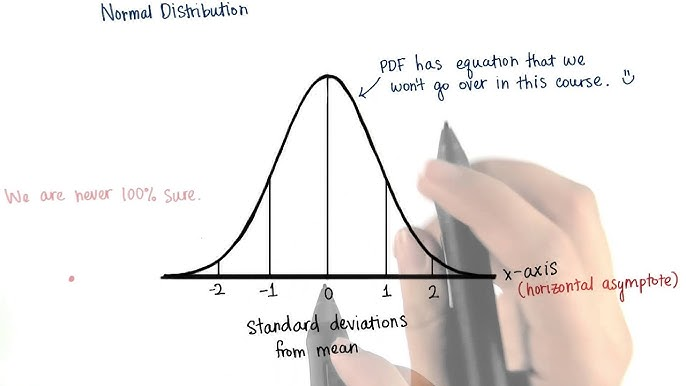 Normal Distribution
PDF has equation that we
won't go over in this course.
We are never 100% sure.
x-axis
(horizontal asymptote)
-2 -1 0 1 2
Standard deviations
from mean